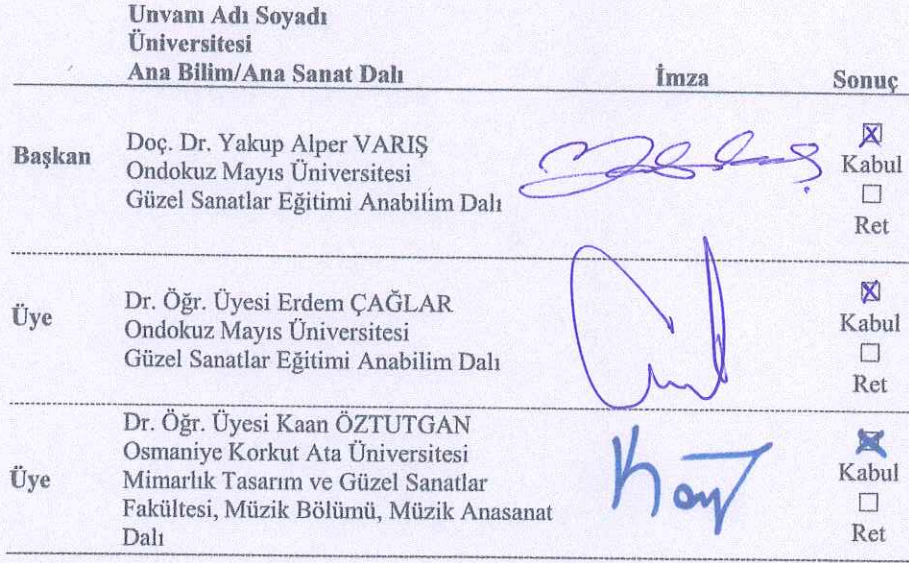 Unvanı Adı Soyadı
Üniversitesi
Ana Bilim/Ana Sanat Dalı İmza Sonuç
Başkan
Doç. Dr. Yakup Alper VARIŞ
Ondokuz Mayıs Üniversitesi
Güzel Sanatlar Eğitimi Anabilim Dalı
☒
Kabul
☐
Ret
Üye
Dr. Öğr. Üyesi Erdem ÇAĞLAR
Ondokuz Mayıs Üniversitesi
Güzel Sanatlar Eğitimi Anabilim Dalı
☒
Kabul
☐
Ret
Üye
Dr. Öğr. Üyesi Kaan ÖZTUTGAN
Osmaniye Korkut Ata Üniversitesi
Mimarlık Tasarım ve Güzel Sanatlar
Fakültesi, Müzik Bölümü, Müzik Anasanat
Dalı
☒
Kabul
☐
Ret